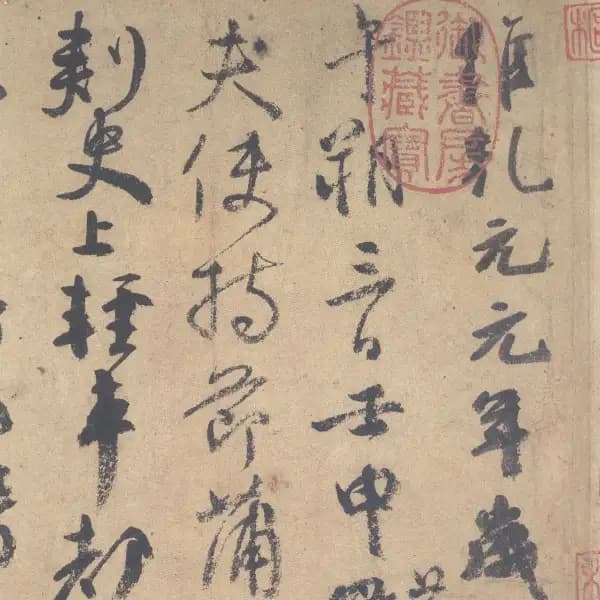 維乾元元年歲
午朔三日壬申
夫使持節蒲
刺史上輕車都
御書房
鑑藏寶